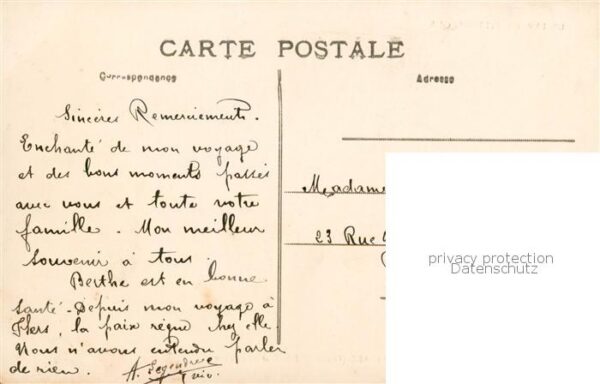 CARTE POSTALE
Correspondence
Adresse
Sincères Remerciements.
Enchanté de mon voyage
et des bons moments passés
avec vous et toute votre
famille. Mon meilleur
souvenir à tous.
Berthe est en bonne
santé - Depuis mon voyage à
Flers, la paix règne chez elle
Nous n'avons entendu parler
de rien.
Madame
23 Rue
privacy protection
Datenschutz